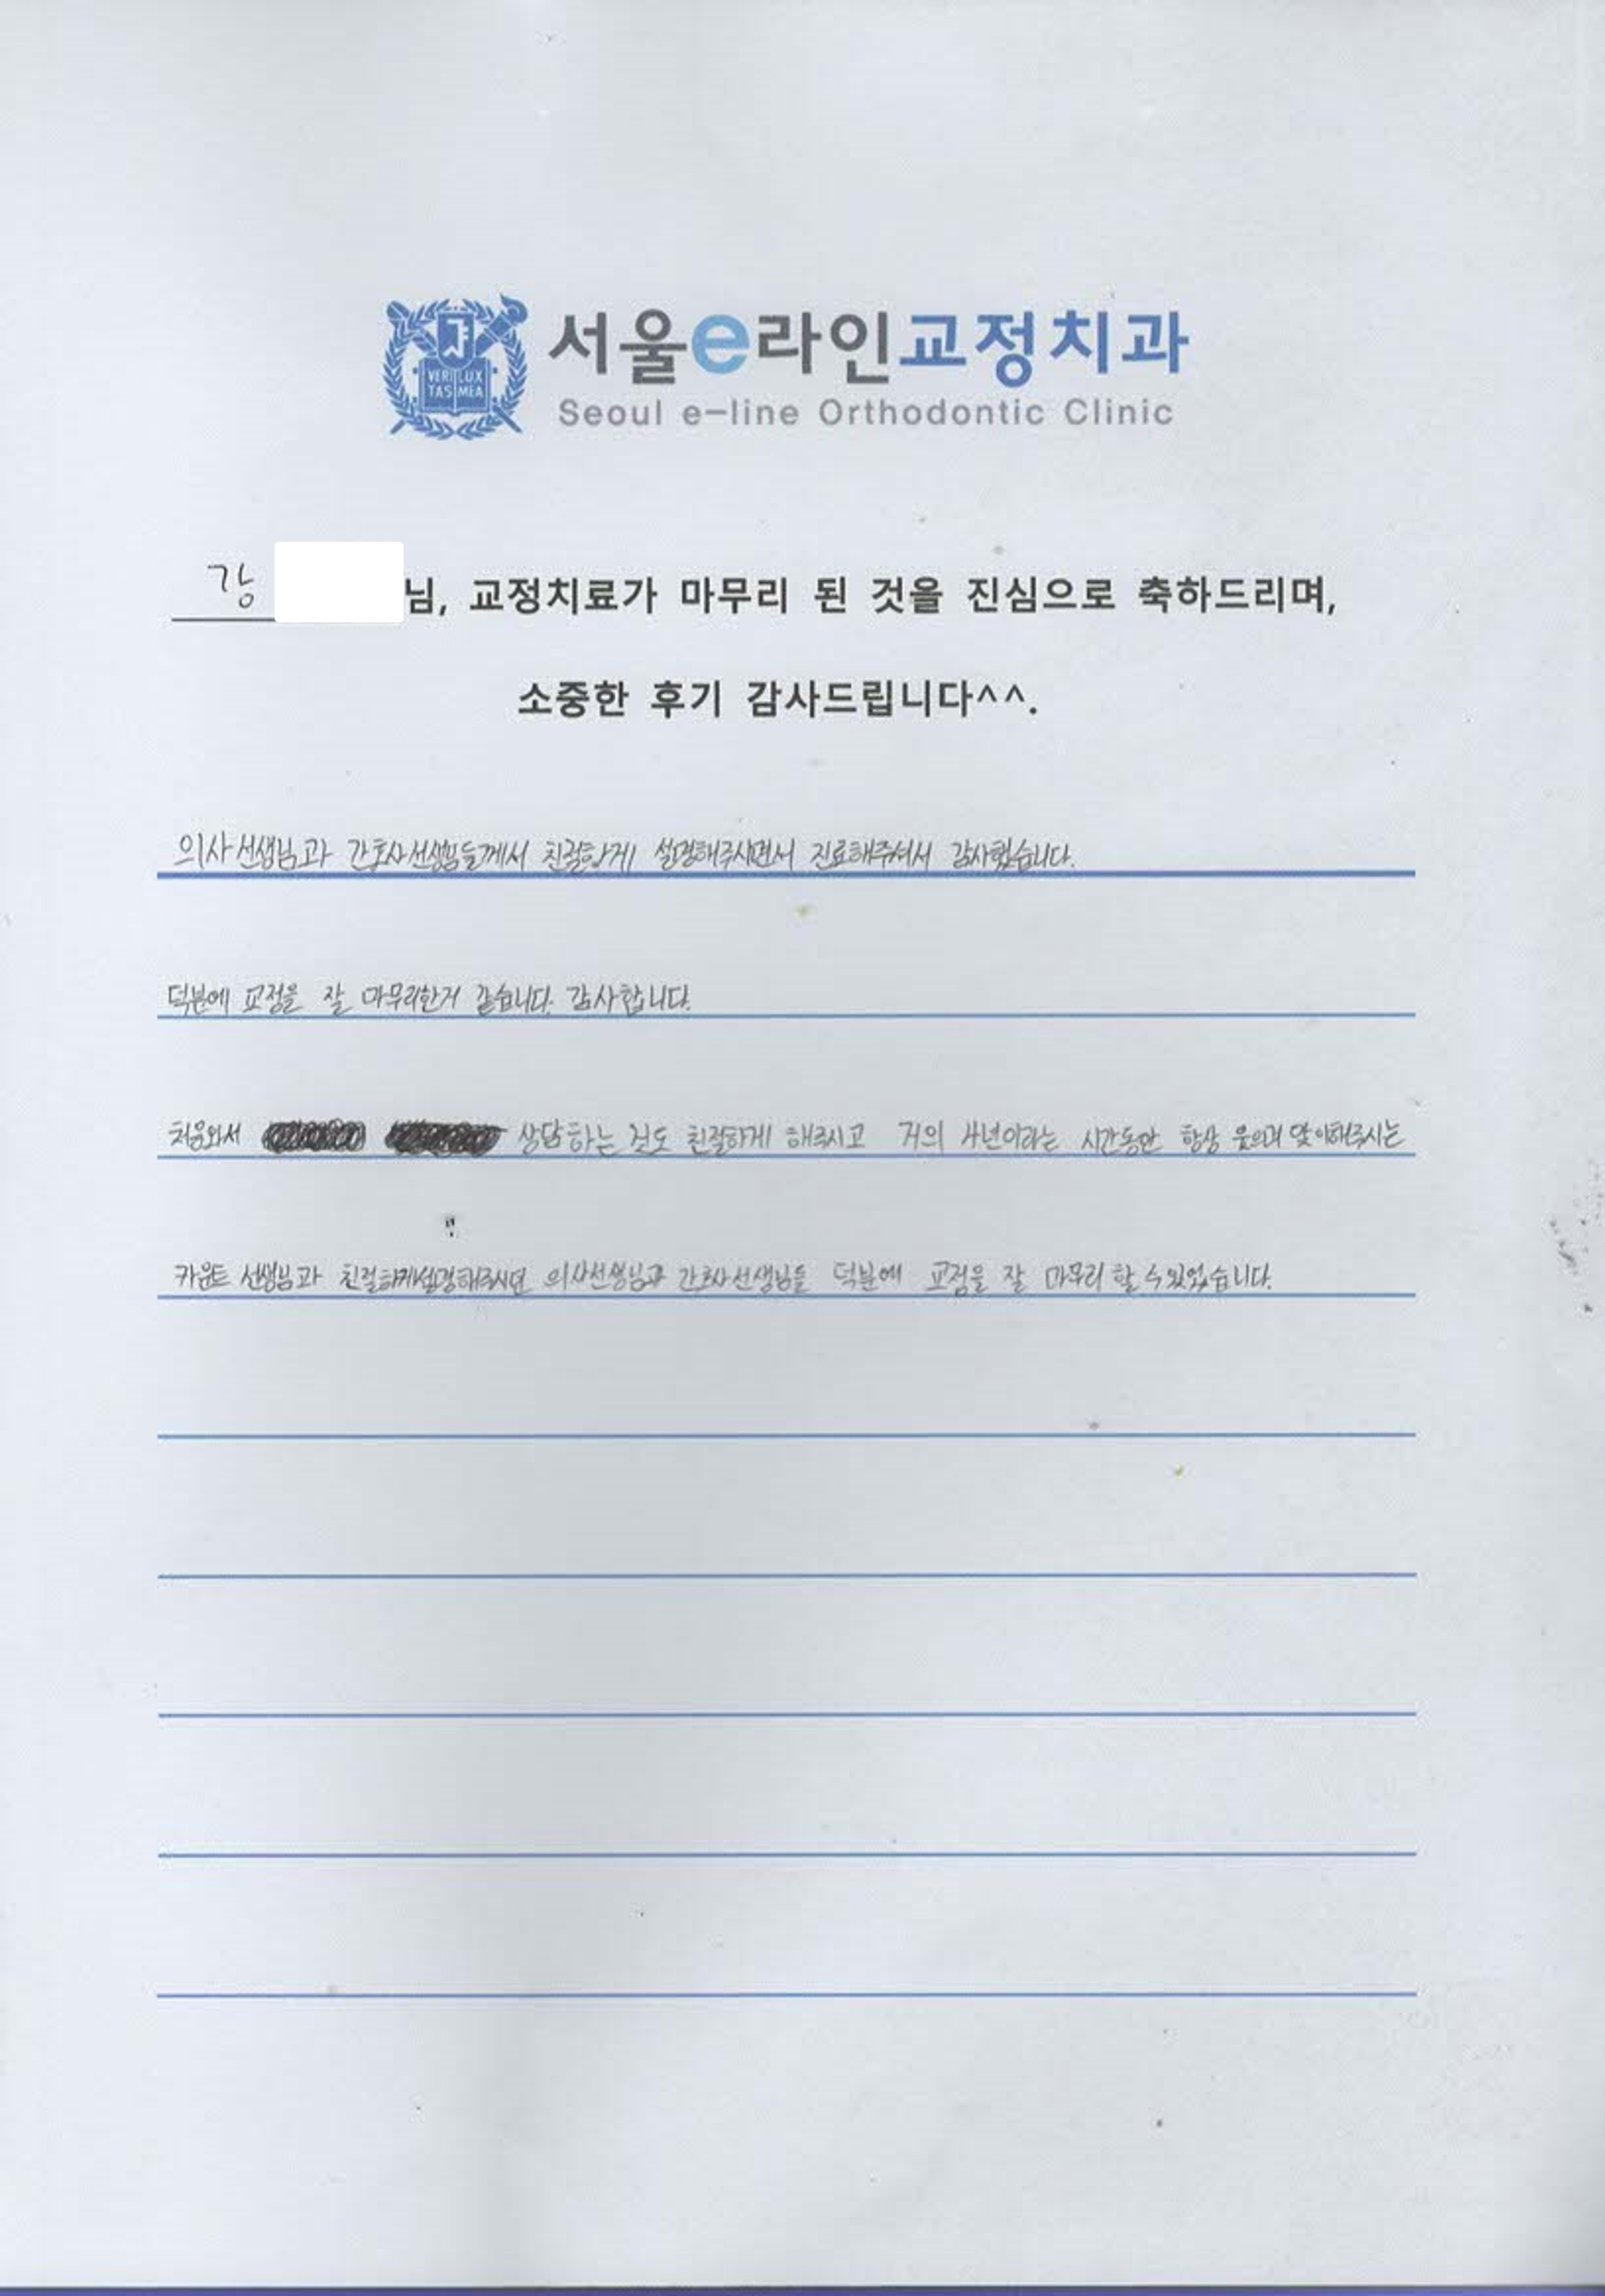 VERI LUX
TAS MEA
서울e라인교정치과
Seoul e-line Orthodontic Clinic
강 님, 교정치료가 마무리 된 것을 진심으로 축하드리며,
소중한 후기 감사드립니다^^.
의사선생님과 간호사선생님들께서 친절하게 설명해주시면서 진료해주셔서 감사했습니다.
덕분에 교정을 잘 마무리한거 같습니다. 감사합니다.
처음와서 상담하는 것도 친절하게 해주시고 거의 4년이라는 시간동안 항상 웃으며 맞이해주시는
카운트 선생님과 친절하게설명해주시던 의사선생님과 간호사선생님들 덕분에 교정을 잘 마무리 할 수있었습니다.